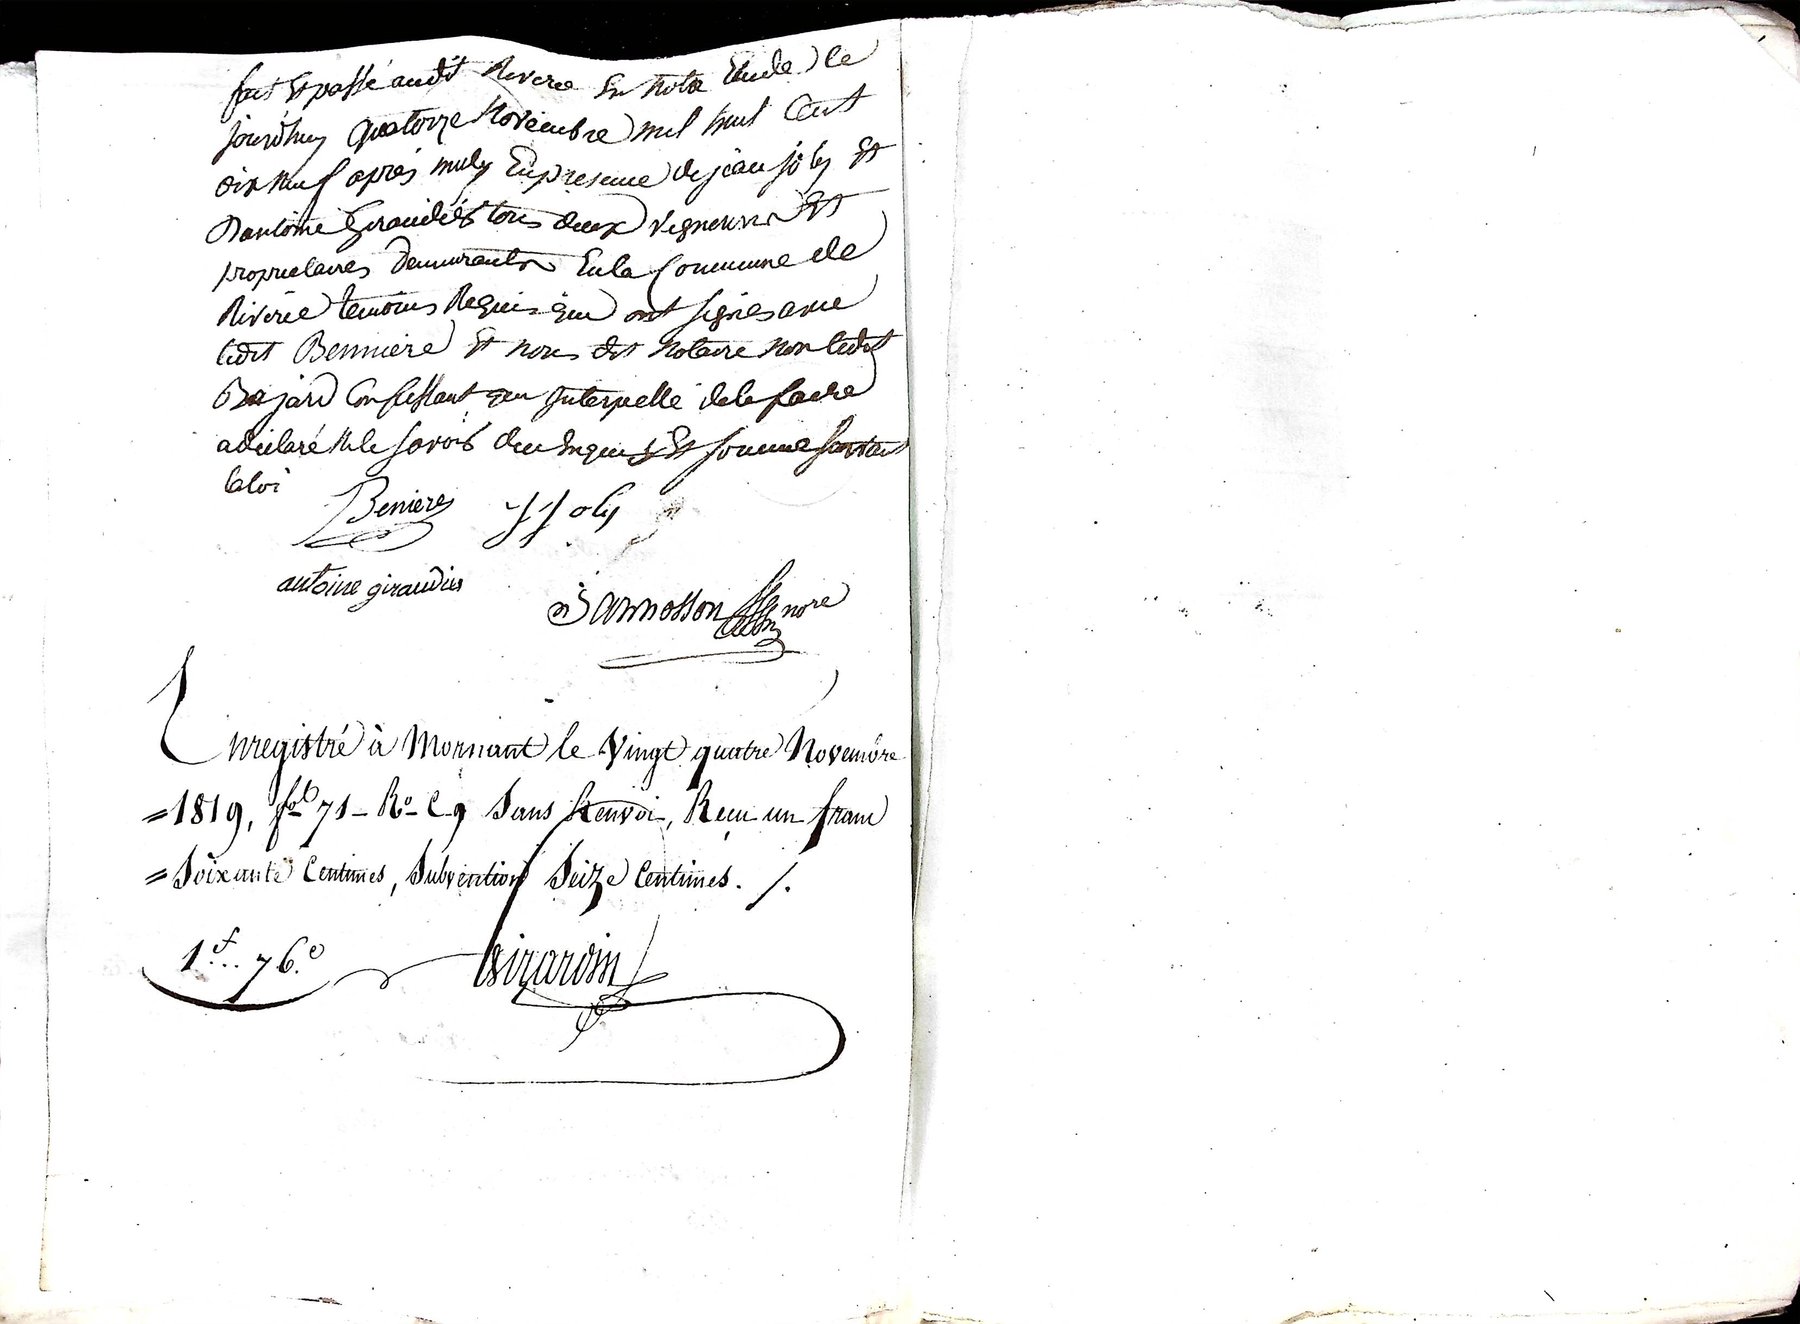 fait et passé audit Riverie En notre Etude le
jourdhuy quatorze Novembre mil huit Cent
dix neuf après midy En presence de jean joly Et
Dantoine Giraudiés tous deux vignerons Et
proprietaires demeurants En la Commune de
Riverie temoins Requis qui ont signés avec
ledit Bennière Et nous dit Notaire non ledit
Bajard Confessant qui Interpellé de le faire
a déclaré Ne le savoir de ce Enquis Et sommé suivant
la loi
Benieres JJoly
antoine giraudies
Jamosson nore
Enregistré à Mornant le Vingt quatre Novembre
=1819, fo 71 - Ro C 9 Sans Renvoi, Reçu un franc
=Soixante Centimes, Subvention Seize Centimes. /.
1f... 76.c Girardin